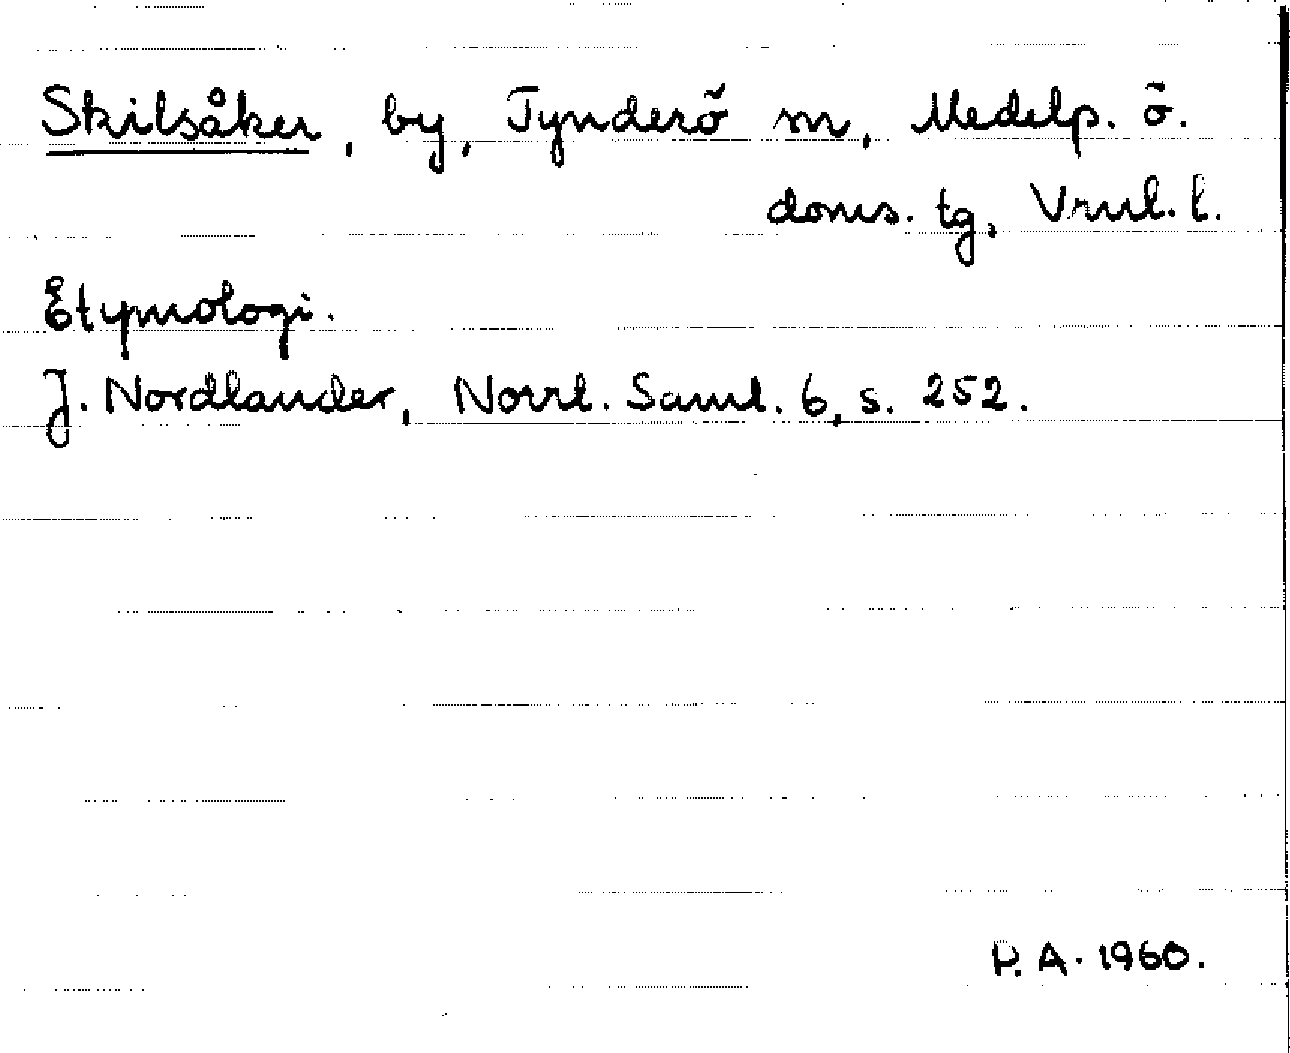 Skilsåker, by, Tynderö sn, Medelp. ö.
doms. tg, Vrnl. l.
Etymologi.
J. Nordlander, Norrl. Saml. 6, s. 252.
P. A. 1960.